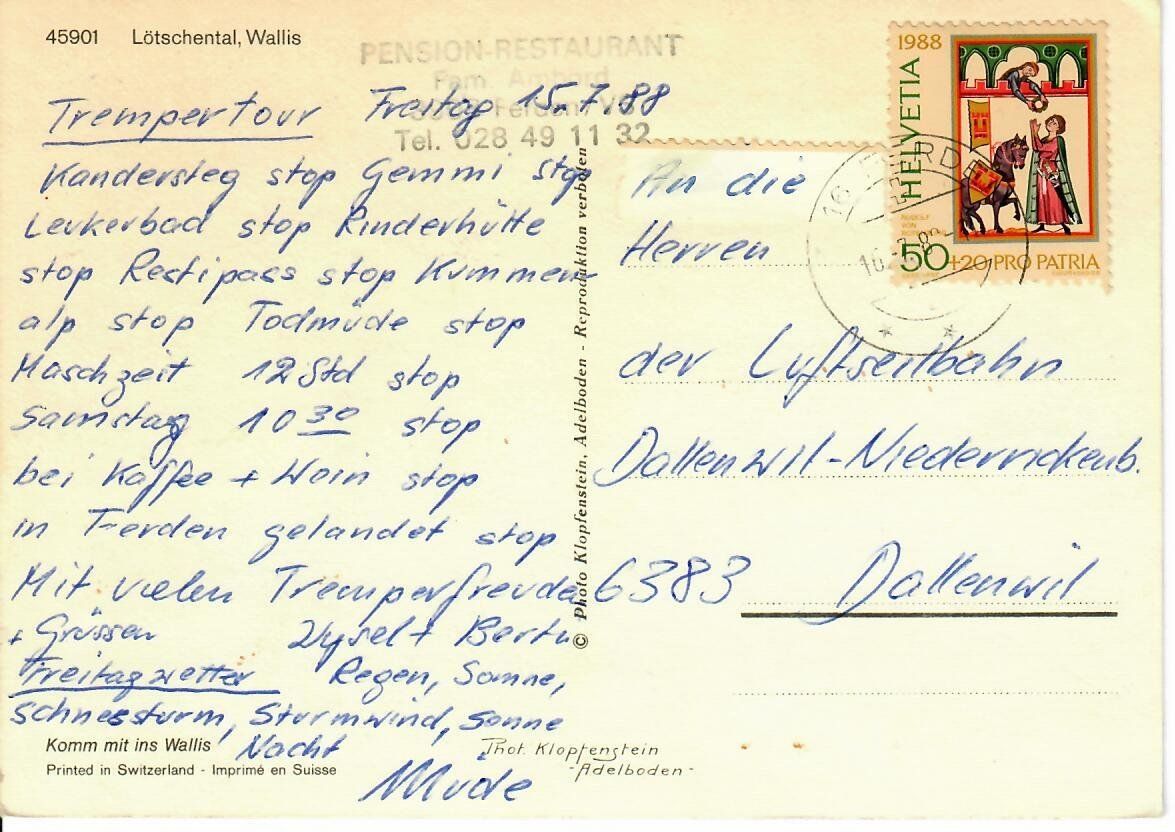 45901 Lötschental, Wallis
PENSION-RESTAURANT
Fam. Ambord
Ferden/VS
Tel. 028 49 11 32
Trempertour Freitag 15.7.88
Kandersteg stop Gemmi stop
Leukerbad stop Rinderhütte
stop Restipass stop Kummen-
alp stop Todmüde stop
Maschzeit 12 Std stop
Samstag 10 30 stop
bei Kaffee + Wein stop
in Ferden gelandet stop
Mit vielen Tremperfreuden
+ Grüssen Wysel +
Freitagwetter Regen, Sonne,
Schneesturm, Sturmwind, Sonne
Nacht
Müde
Komm mit ins Wallis
Printed in Switzerland - Imprimé en Suisse
© Photo Klopfenstein, Adelboden - Reproduktion verboten
Phot. Klopfenstein
-Adelboden-
1988
HELVETIA
RUDOLF
VON
50+20 PRO PATRIA
FERDEN
16.-7.88
An die
Herren
der Luftseilbahn
Dallenwil-Niederrickenb.
6383 Dallenwil